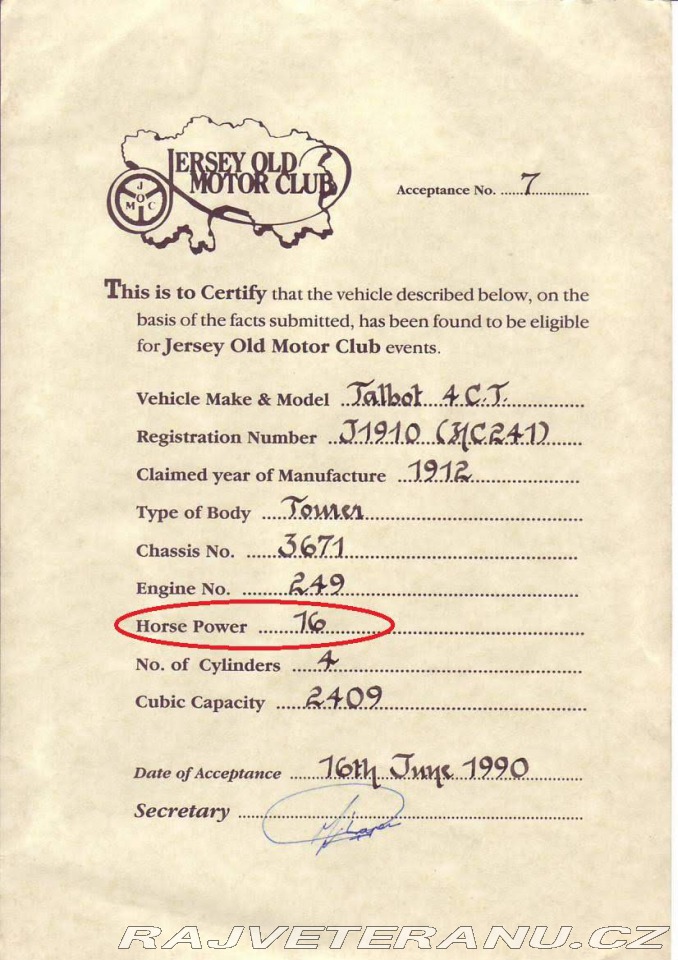 JERSEY OLD
MOTOR CLUB
J
M O C
Acceptance No. ......7................
This is to Certify that the vehicle described below, on the
basis of the facts submitted, has been found to be eligible
for Jersey Old Motor Club events.
Vehicle Make & Model Talbot 4 C.T.
Registration Number J1910 (HC241)
Claimed year of Manufacture 1912
Type of Body Tourer
Chassis No. 3671
Engine No. 249
Horse Power 16
No. of Cylinders 4
Cubic Capacity 2409
Date of Acceptance 16th June 1990
Secretary
RAJVETERANU.CZ